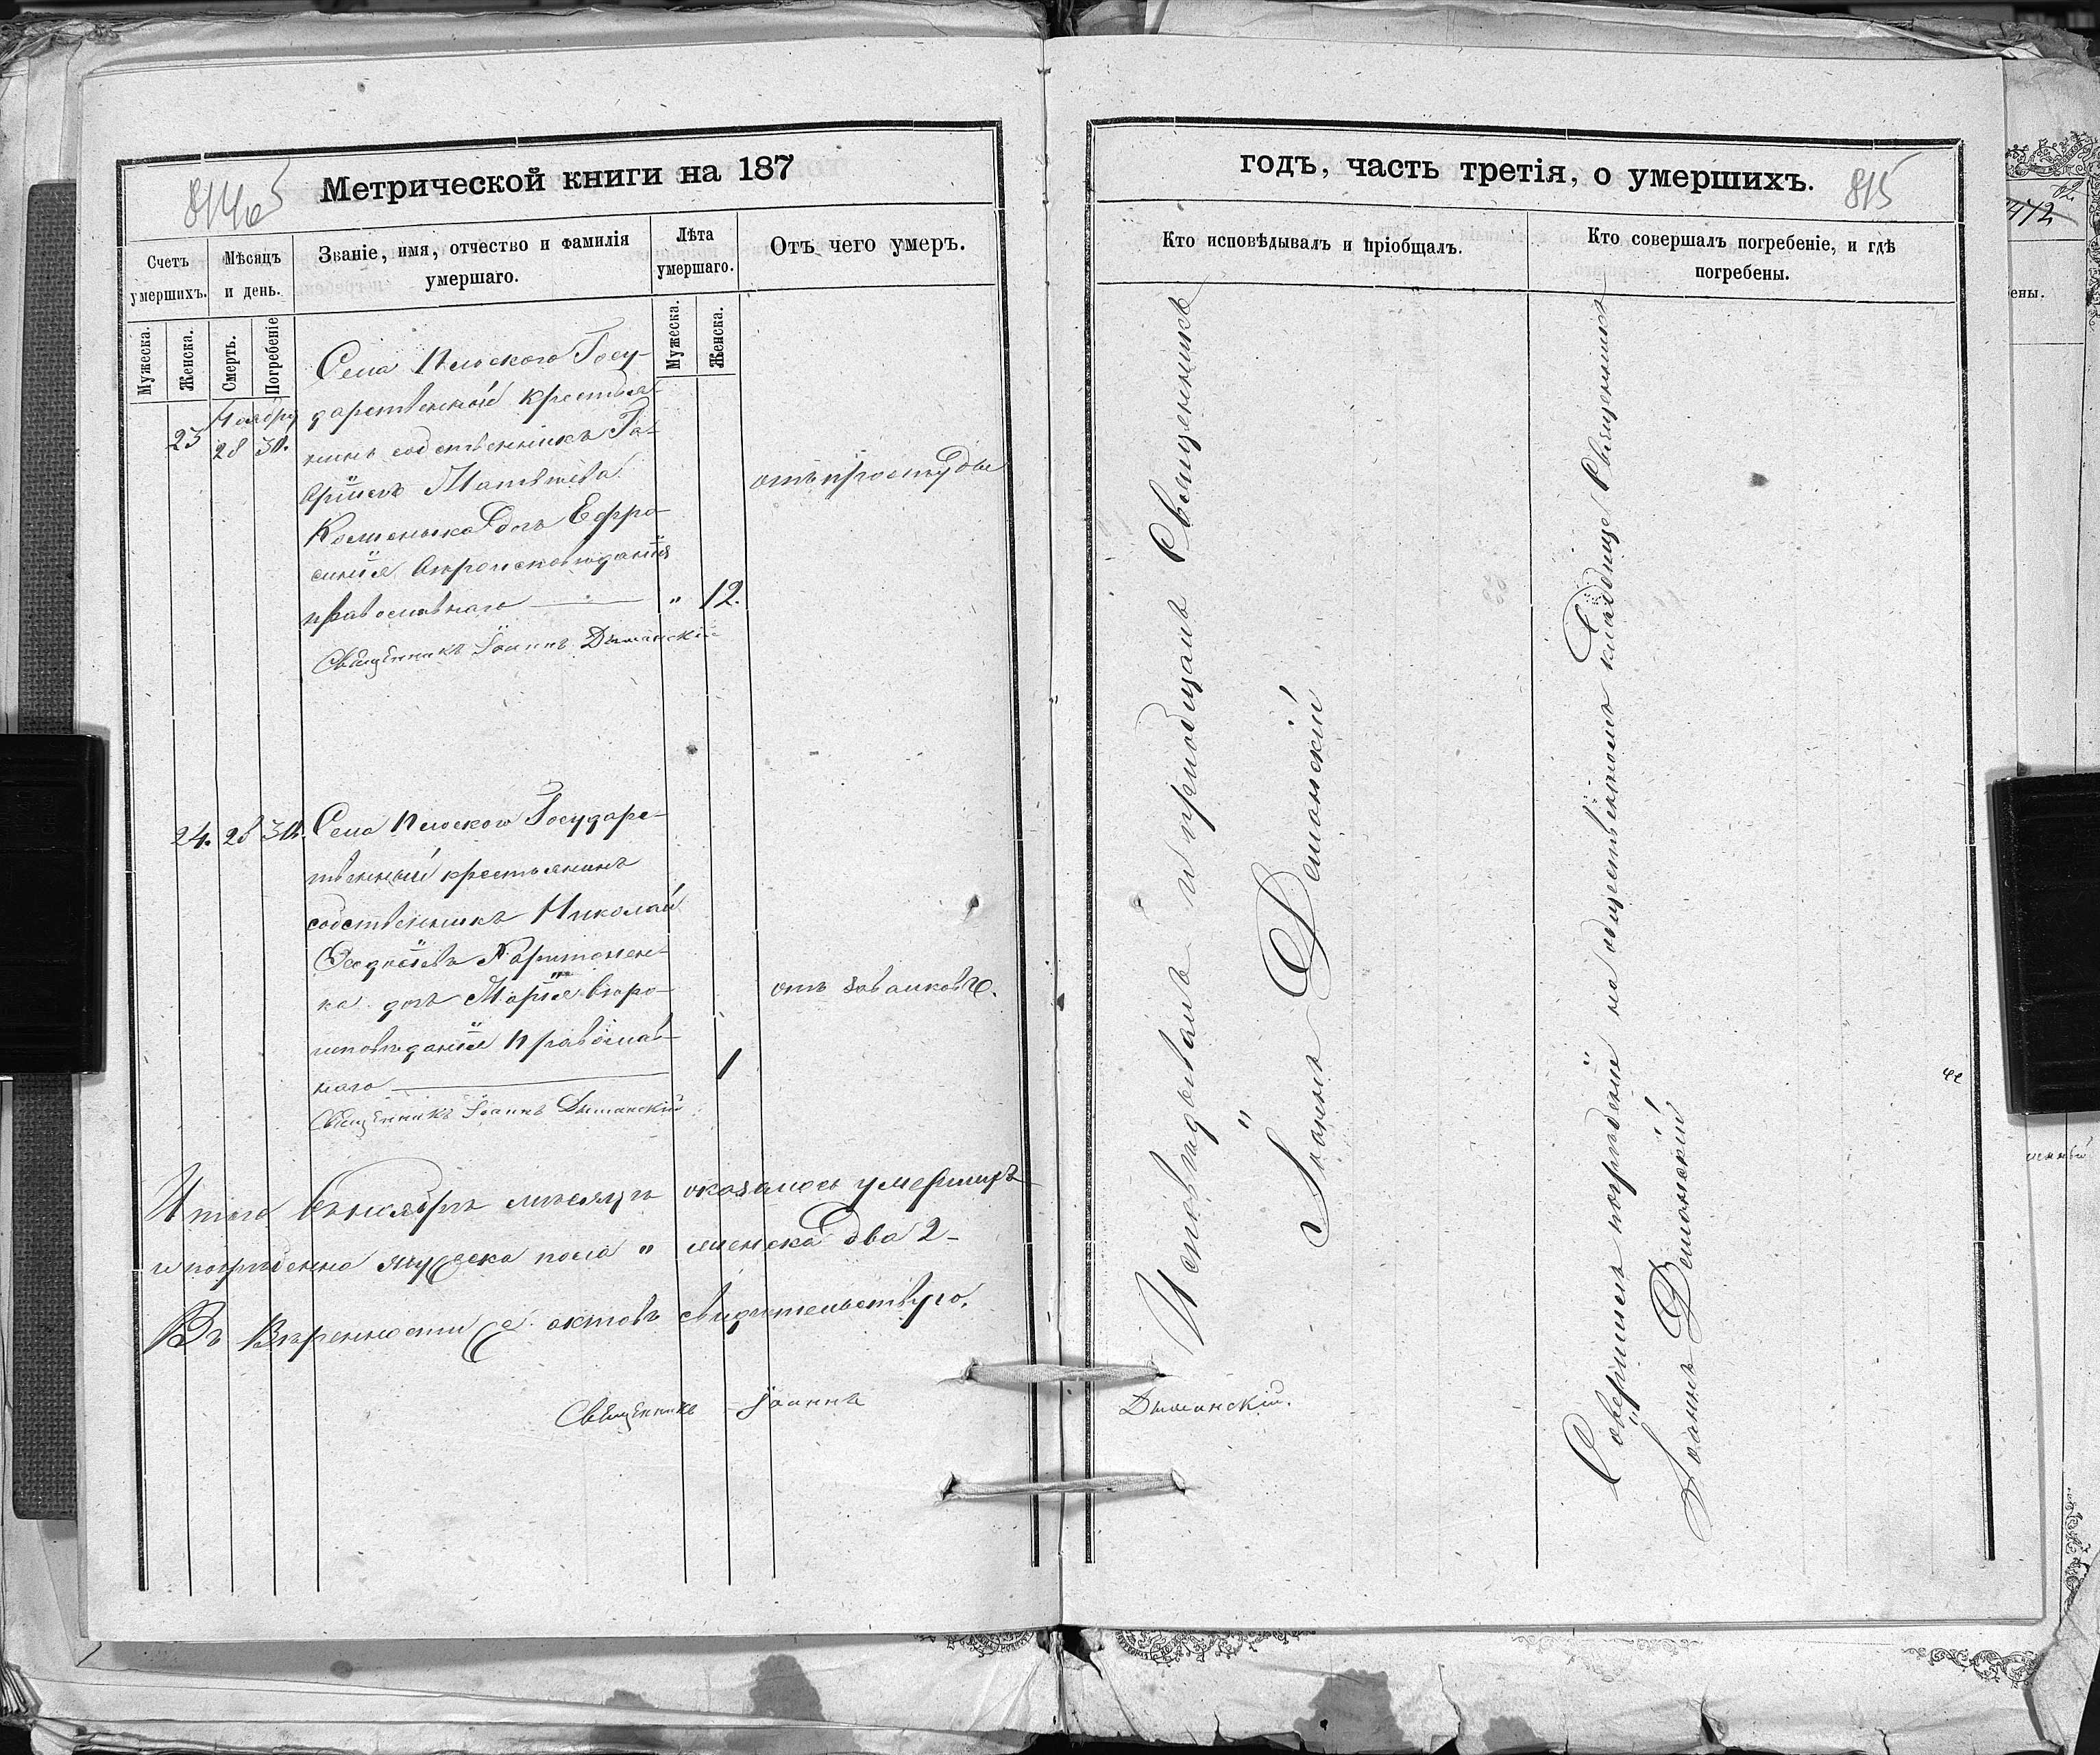 Метрической книги на 187
Счетъ умершихъ.
Мѣсяцъ и день.
Званіе, имя, отчество и фамилія умершаго.
Лѣта умершаго.
Отъ чего умеръ.
Мужеска.
Женска.
Смерть.
Погребеніе
Мужеска.
Женска.
Ноября
23 28 30.
Села Плоского Госу-
дарственный крестья-
нинъ собственникъ Га-
вріилъ Матвѣева
дочь Ефро-
синія вѣроисповѣданія
православнаго — " 12.
отъ простуды
Священникъ Іоаннъ Дыманскій
24. 28 30. Села Плоского Государс-
твенный крестьянинъ
собственникъ Николай
Харитонен-
ка дочь Марія вѣро-
исповѣданія православ-
наго — 1
Священникъ Іоаннъ Дыманскій
Итого въ ноябрѣ мѣсяцѣ оказалось умершихъ
и погребенно мужеска пола " женска два 2-
Въ вѣренности актовъ свидѣтельствую.
Священникъ Іоаннъ Дыманскій.
годъ, часть третія, о умершихъ.
815
Кто исповѣдывалъ и пріобщалъ.
Кто совершалъ погребеніе, и гдѣ погребены.
Исповѣдывалъ и пріобщалъ Священникъ
Іоаннъ Дыманскій
Совершилъ погребеніе на общественномъ кладбище Священникъ
Іоаннъ Дыманскій